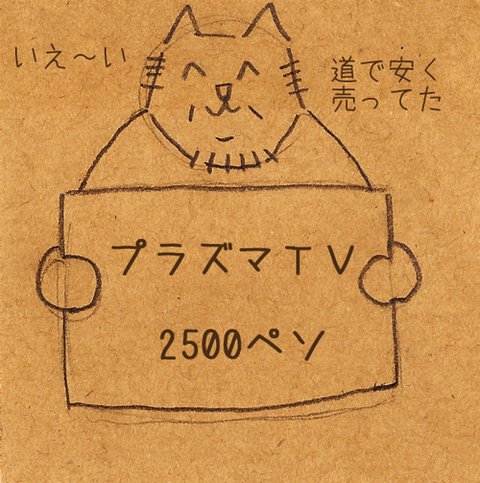 いえ〜い
道で安く
売ってた
プラズマTV
2500ペソ